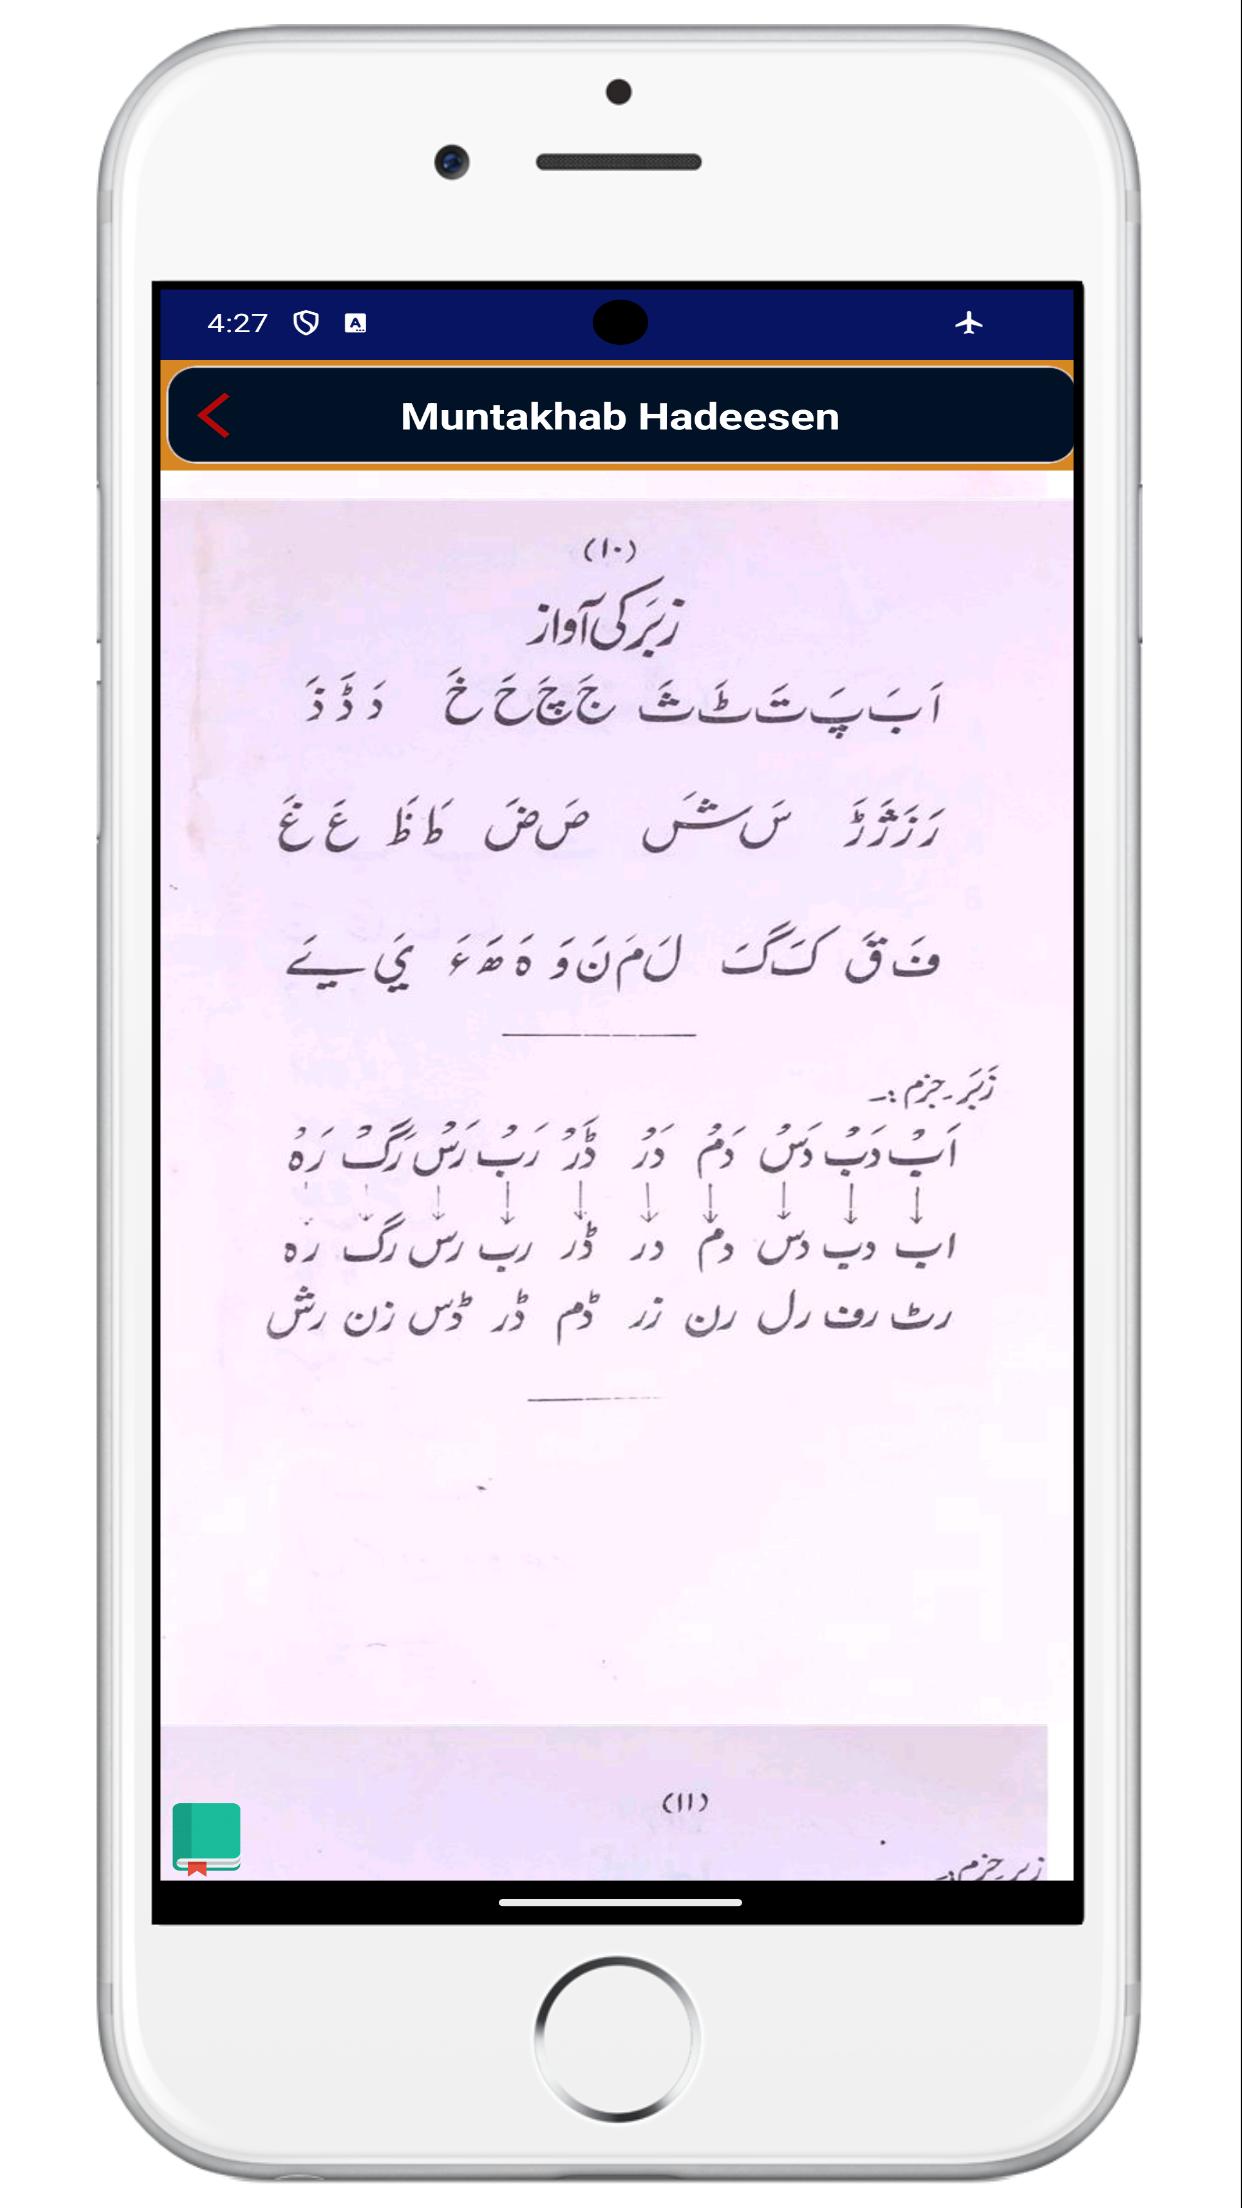 4:27
Muntakhab Hadeesen
(۱۰)
زبَر کی آواز
اَ بَ پَ تَ ٹَ ثَ جَ چَ حَ خَ دَ ڈَ ذَ
رَ زَ ژَ ڑَ سَ شَ صَ ضَ طَ ظَ عَ غَ
فَ قَ کَ گَ لَ مَ نَ وَ ہَ ھَ ءَ يَ ےَ
زَبَر ۔ جزم :۔
اَبْ دَبْ دَسْ دَمْ دَرْ ڈَرْ رَبْ رَسْ رَگْ رَہْ
اب دب دس دم در ڈر رب رس رگ رہ
رٹ رف رل رن زر ڈم ڈر ڈس زن رش
(۱۱)
زبر جزم :۔